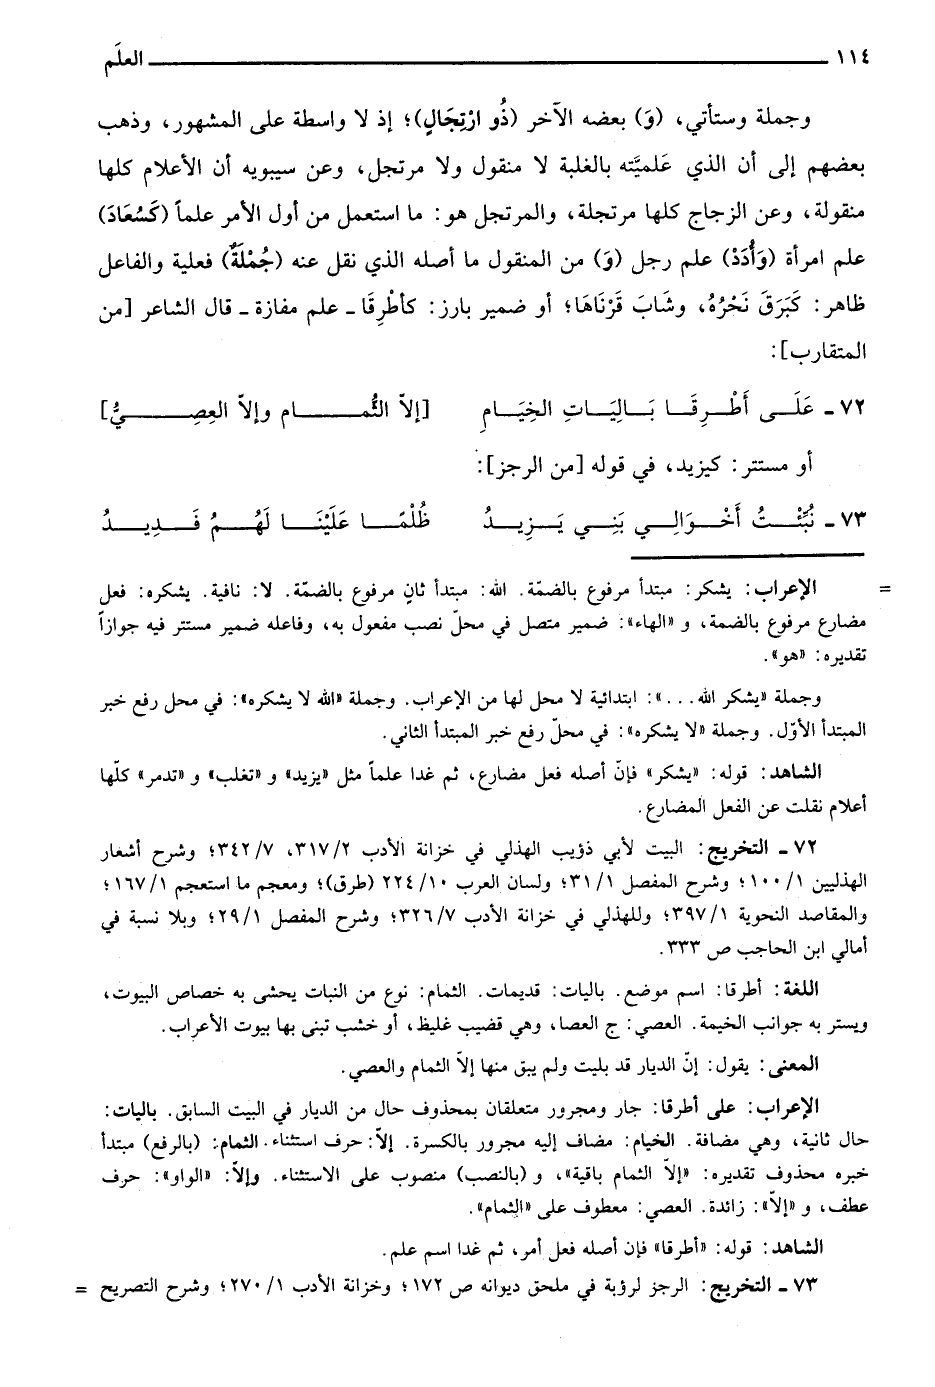 ١١٤ العلَم
وجملة وستأتي، (وَ) بعضه الآخر (ذُو ارْتِجَالٍ)؛ إذ لا واسطة على المشهور، وذهب
بعضهم إلى أن الذي عَلميَّته بالغلبة لا منقول ولا مرتجل، وعن سيبويه أن الأعلام كلها
منقولة، وعن الزجاج كلها مرتجلة، والمرتجل هو: ما استعمل من أول الأمر علماً (كَسُعَادَ)
علم امرأة (وَأُدَدْ) علم رجل (وَ) من المنقول ما أصله الذي نقل عنه (جُمْلَةٌ) فعلية والفاعل
ظاهر: كَبَرَقَ نَحْرُهُ، وشَابَ قَرْنَاهَا؛ أو ضمير بارز: كأطْرِقَا ـ علم مفازة ـ قال الشاعر [من
المتقارب]:
٧٢ ـ عَلَى أَطْرِقَا بَالِيَاتِ الخِيَامِ [إلاّ الثُّمَام وإلاّ العِصِيُّ]
أو مستتر: كيزيد، في قوله [من الرجز]:
٧٣ ـ نُبِّئْتُ أَخْوَالِي بَنِي يَزِيدُ ظُلْمًا عَلَيْنَا لَهُمُ فَدِيدُ
= الإعراب: يشكر: مبتدأ مرفوع بالضمّة. الله: مبتدأ ثانٍ مرفوع بالضمّة. لا: نافية. يشكره: فعل
مضارع مرفوع بالضمة، و «الهاء»: ضمير متصل في محلّ نصب مفعول به، وفاعله ضمير مستتر فيه جوازاً
تقديره: «هو».
وجملة «يشكر الله...»: ابتدائية لا محل لها من الإعراب. وجملة «الله لا يشكره»: في محل رفع خبر
المبتدأ الأوّل. وجملة «لا يشكره»: في محلّ رفع خبر المبتدأ الثاني.
الشاهد: قوله: «يشكر» فإنّ أصله فعل مضارع، ثم غدا علماً مثل «يزيد» و «تغلب» و «تدمر» كلّها
أعلام نقلت عن الفعل المضارع.
٧٢ ـ التخريج: البيت لأبي ذؤيب الهذلي في خزانة الأدب ٣١٧/٢، ٣٤٢/٧؛ وشرح أشعار
الهذليين ١٠٠/١؛ وشرح المفصل ٣١/١؛ ولسان العرب ٢٢٤/١٠ (طرق)؛ ومعجم ما استعجم ١٦٧/١؛
والمقاصد النحوية ٣٩٧/١؛ وللهذلي في خزانة الأدب ٣٢٦/٧؛ وشرح المفصل ٢٩/١؛ وبلا نسبة في
أمالي ابن الحاجب ص ٣٣٣.
اللغة: أطرقا: اسم موضع. باليات: قديمات. الثمام: نوع من النبات يحشى به خصاص البيوت،
ويستر به جوانب الخيمة. العصي: ج العصا، وهي قضيب غليظ، أو خشب تبنى بها بيوت الأعراب.
المعنى: يقول: إنّ الديار قد بليت ولم يبق منها إلاّ الثمام والعصي.
الإعراب: على أطرقا: جار ومجرور متعلقان بمحذوف حال من الديار في البيت السابق. باليات:
حال ثانية، وهي مضافة. الخيام: مضاف إليه مجرور بالكسرة. إلاّ: حرف استثناء. الثمام: (بالرفع) مبتدأ
خبره محذوف تقديره: «إلاّ الثمام باقية»، و (بالنصب) منصوب على الاستثناء. وإلاّ: «الواو»: حرف
عطف، و «إلاّ»: زائدة. العصي: معطوف على «الثمام».
الشاهد: قوله: «أطرقا» فإن أصله فعل أمر، ثم غدا اسم علم.
٧٣ ـ التخريج: الرجز لرؤبة في ملحق ديوانه ص ١٧٢؛ وخزانة الأدب ٢٧٠/١؛ وشرح التصريح =